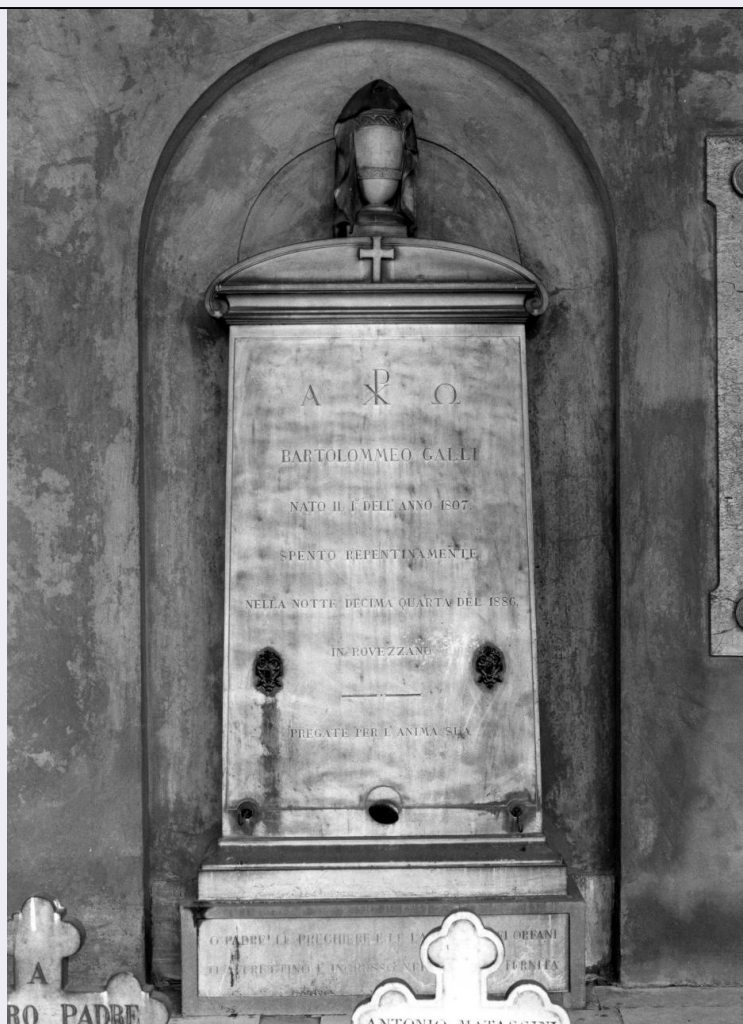 Α ☧ Ω
BARTOLOMMEO GALLI
NATO IL 1 DELL'ANNO 1807
SPENTO REPENTINAMENTE
NELLA NOTTE DECIMA QUARTA DEL 1886,
IN ROVEZZANO
PREGATE PER L'ANIMA SUA
O PADRE LE PREGHIERE E LE ORFANI
A
RO PADRE
ANTONIO MATASSINI